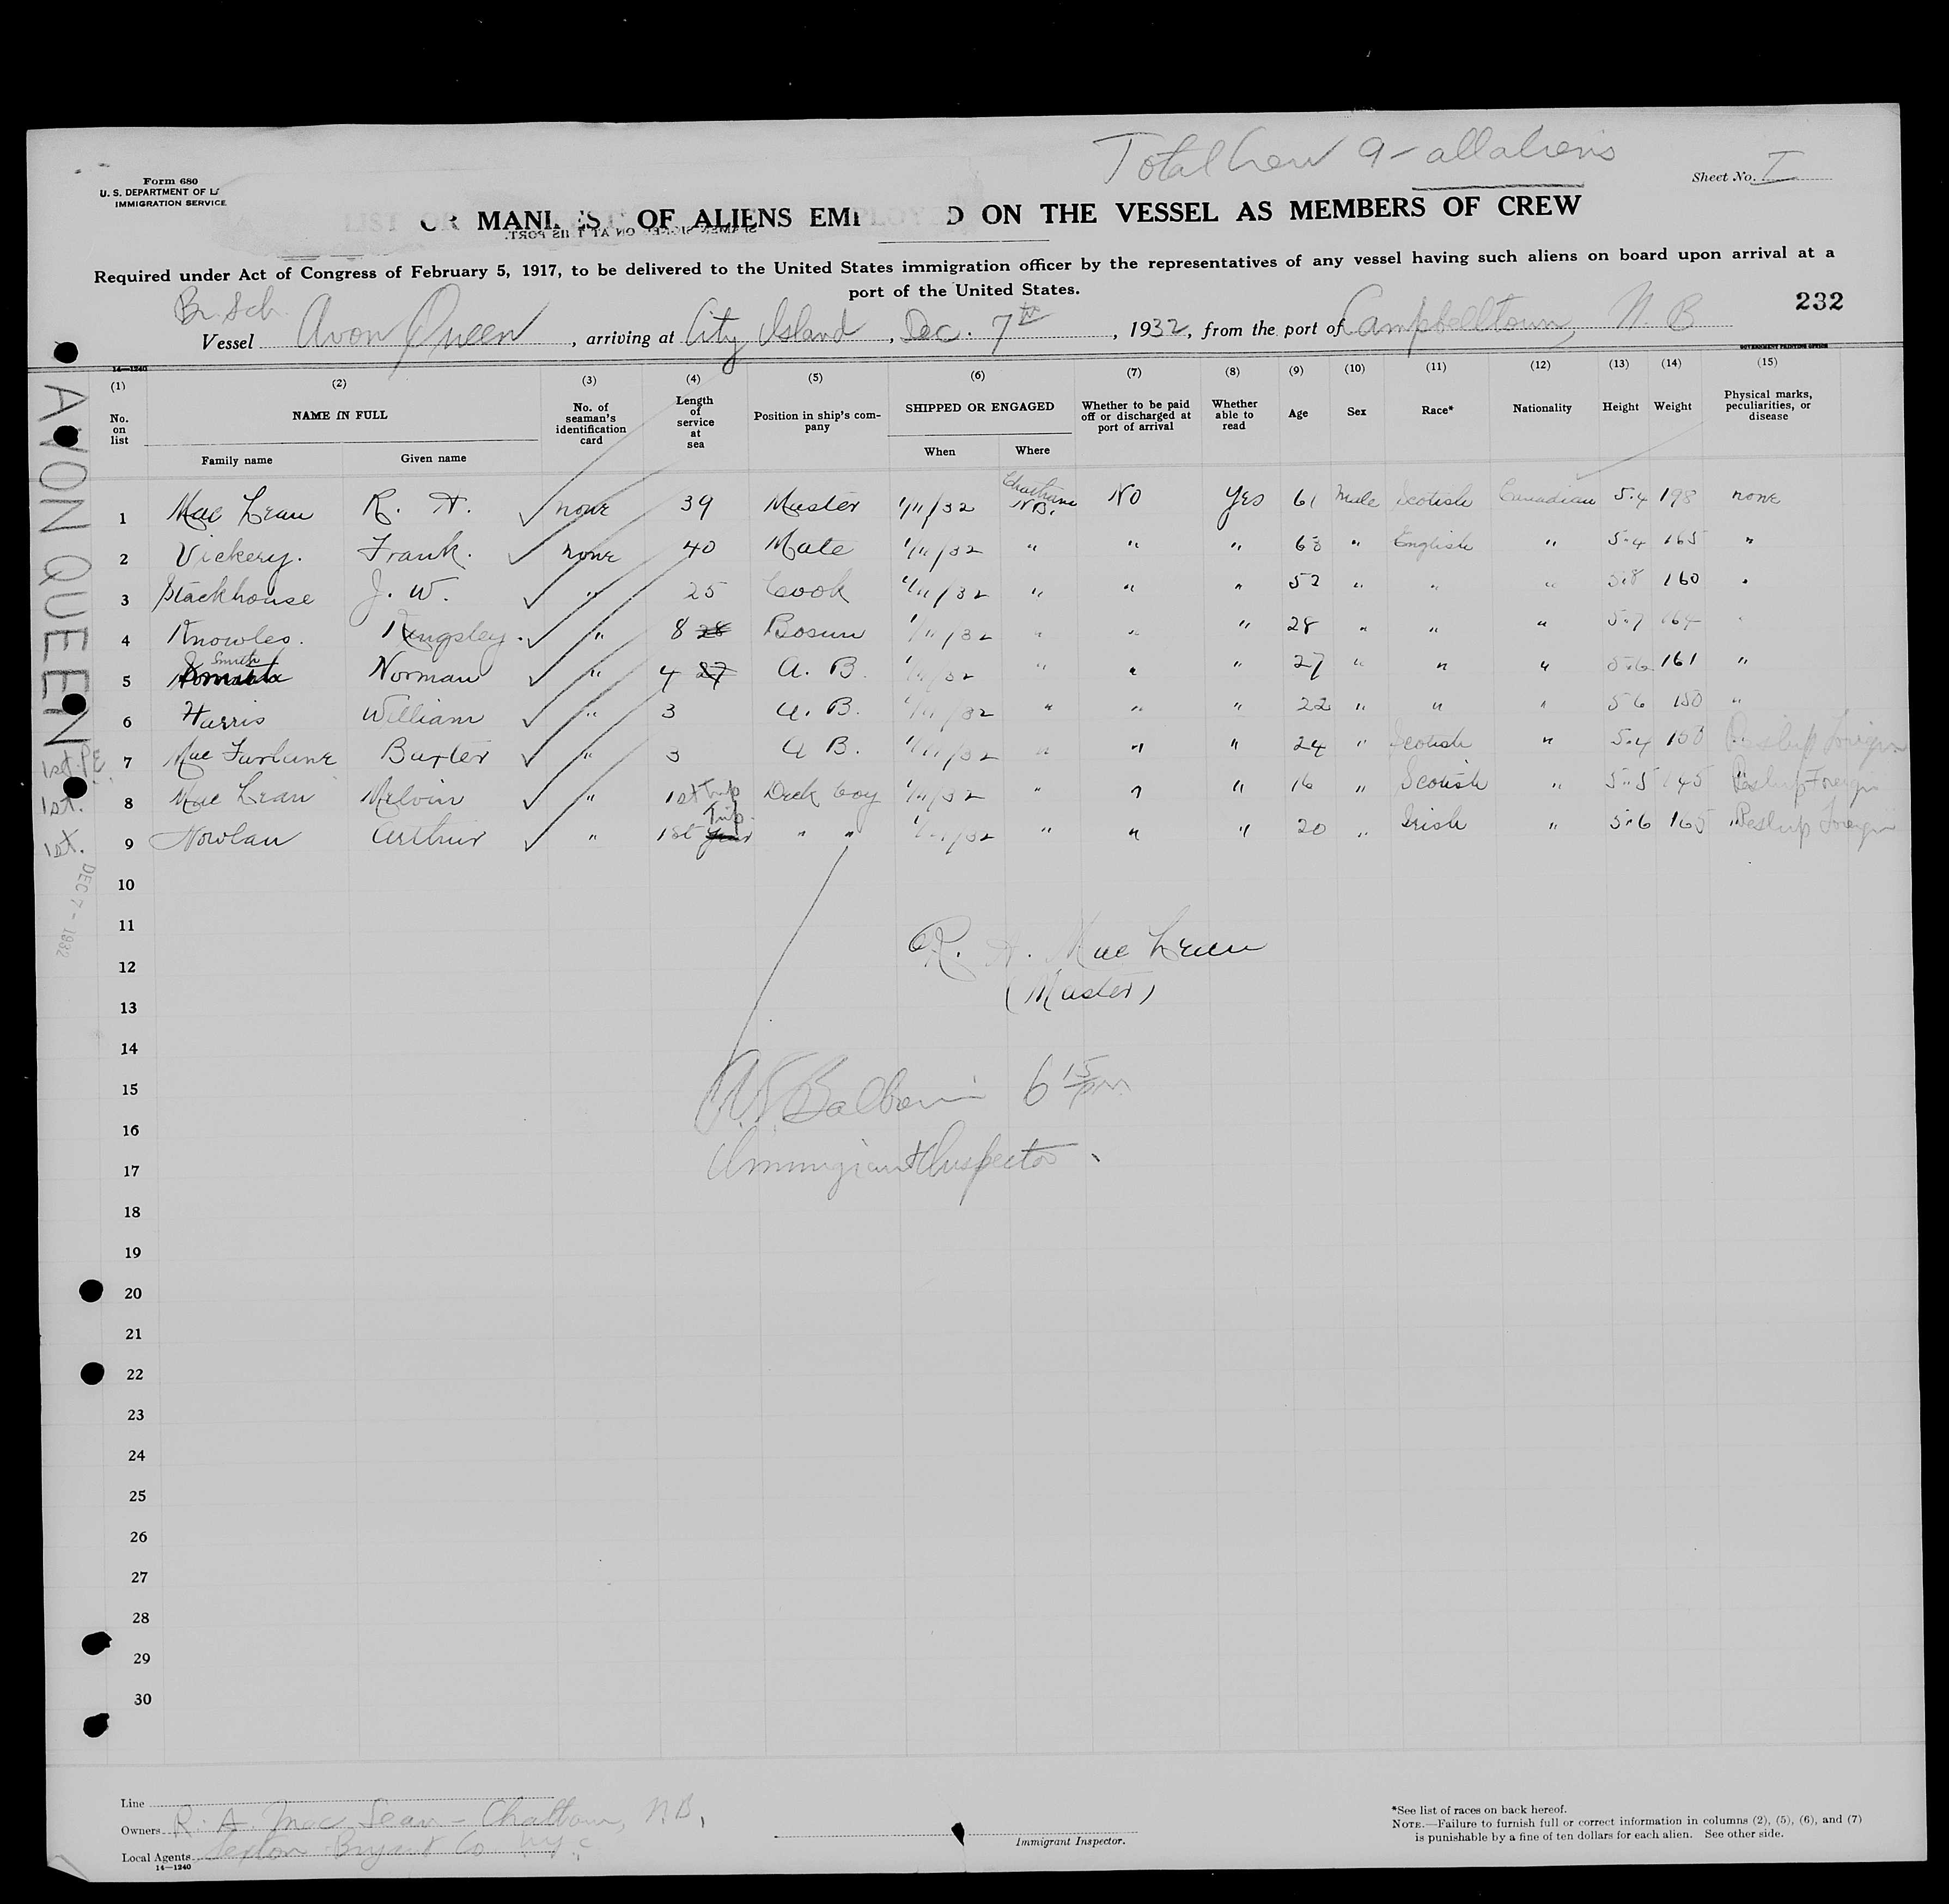 Total Crew 9 - all aliens
Form 680
U. S. DEPARTMENT OF LA
IMMIGRATION SERVICE
Sheet No. I
OR MANIFEST OF ALIENS EMPLOYED ON THE VESSEL AS MEMBERS OF CREW
SEAMEN SIGNED ON AT THIS PORT.
Required under Act of Congress of February 5, 1917, to be delivered to the United States immigration officer by the representatives of any vessel having such aliens on board upon arrival at a
port of the United States.
232
Br. Sch.
Vessel Avon Queen, arriving at City Island, Dec. 7th, 1932, from the port of Campbelltown, N. B
GOVERNMENT PRINTING OFFICE
14—1240
(1) (2) (3) (4) (5) (6) (7) (8) (9) (10) (11) (12) (13) (14) (15)
No. on list NAME IN FULL No. of seaman's identification card Length of service at sea Position in ship's company SHIPPED OR ENGAGED Whether to be paid off or discharged at port of arrival Whether able to read Age Sex Race* Nationality Height Weight Physical marks, peculiarities, or disease
Family name Given name When Where
1 Mac Lean R. A. none 39 Master 1/11/32 Chatham N.B. No Yes 61 Male Scotish Canadian 5.4 198 none
2 Vickery. Frank. none 40 Mate 1/11/32 " " " 68 " English " 5.4 165 "
3 Stackhouse J. W. " 25 Cook 1/11/32 " " " 52 " " " 5.8 160 "
4 Knowles. Kingsley. " 8 28 Bosun 1/11/32 " " " 28 " " " 5.7 164 "
5 Smith Norman " 4 27 A. B. 1/11/32 " " " 27 " " " 5.6 161 "
6 Harris William " 3 A. B. 1/11/32 " " " 22 " " " 5 6 150 "
7 Mac Farlane Baxter " 3 A B. 1/11/32 " " " 24 " Scotish " 5.4 "
8 Mac Lean Melvin " 1st Trip Deck boy 1/11/32 " " " 16 " Scotish " 5.5 145 " Foreign
9 Nowlan Arthur " 1st Year Trip " " 1/11/32 " " " 20 " Irish " 5.6 165 " Foreign
AVON QUEEN
1st. P.E.
1st.
1st.
DEC 7 - 1932
10
11
R. A. Mac Lean
12
(Master)
13
14
15
Baldwin 6 15 pm
16
17
Immigrant Inspector.
18
19
20
21
22
23
24
25
26
27
28
29
30
Line
Owners R. A. Mac Lean - Chatham, N.B.
Local Agents Bryant Co N.Y.C
14—1240
Immigrant Inspector.
*See list of races on back hereof.
NOTE.—Failure to furnish full or correct information in columns (2), (5), (6), and (7)
is punishable by a fine of ten dollars for each alien. See other side.